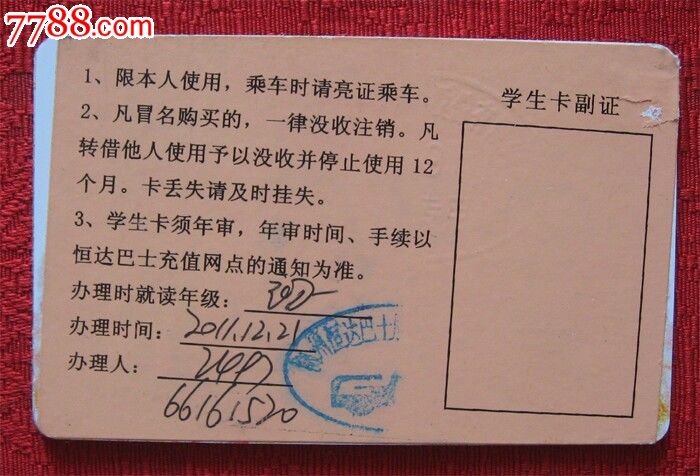 7788.com
1、限本人使用，乘车时请亮证乘车。
2、凡冒名购买的，一律没收注销。凡
转借他人使用予以没收并停止使用12
个月。卡丢失请及时挂失。
3、学生卡须年审，年审时间、手续以
恒达巴士充值网点的通知为准。
办理时就读年级：
办理时间：2011.12.21
办理人：
66161520
学生卡副证
恒达巴士